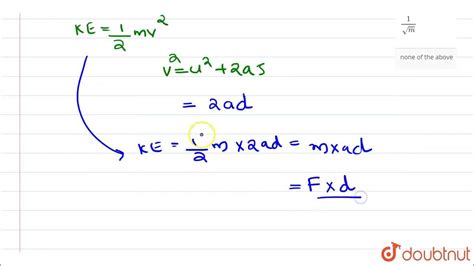 KE = 1/2 mv²
v² = u² + 2as
= 2ad
KE = 1/2 m × 2ad = m×ad
= F×d
1/√m
none of the above
doubtnut